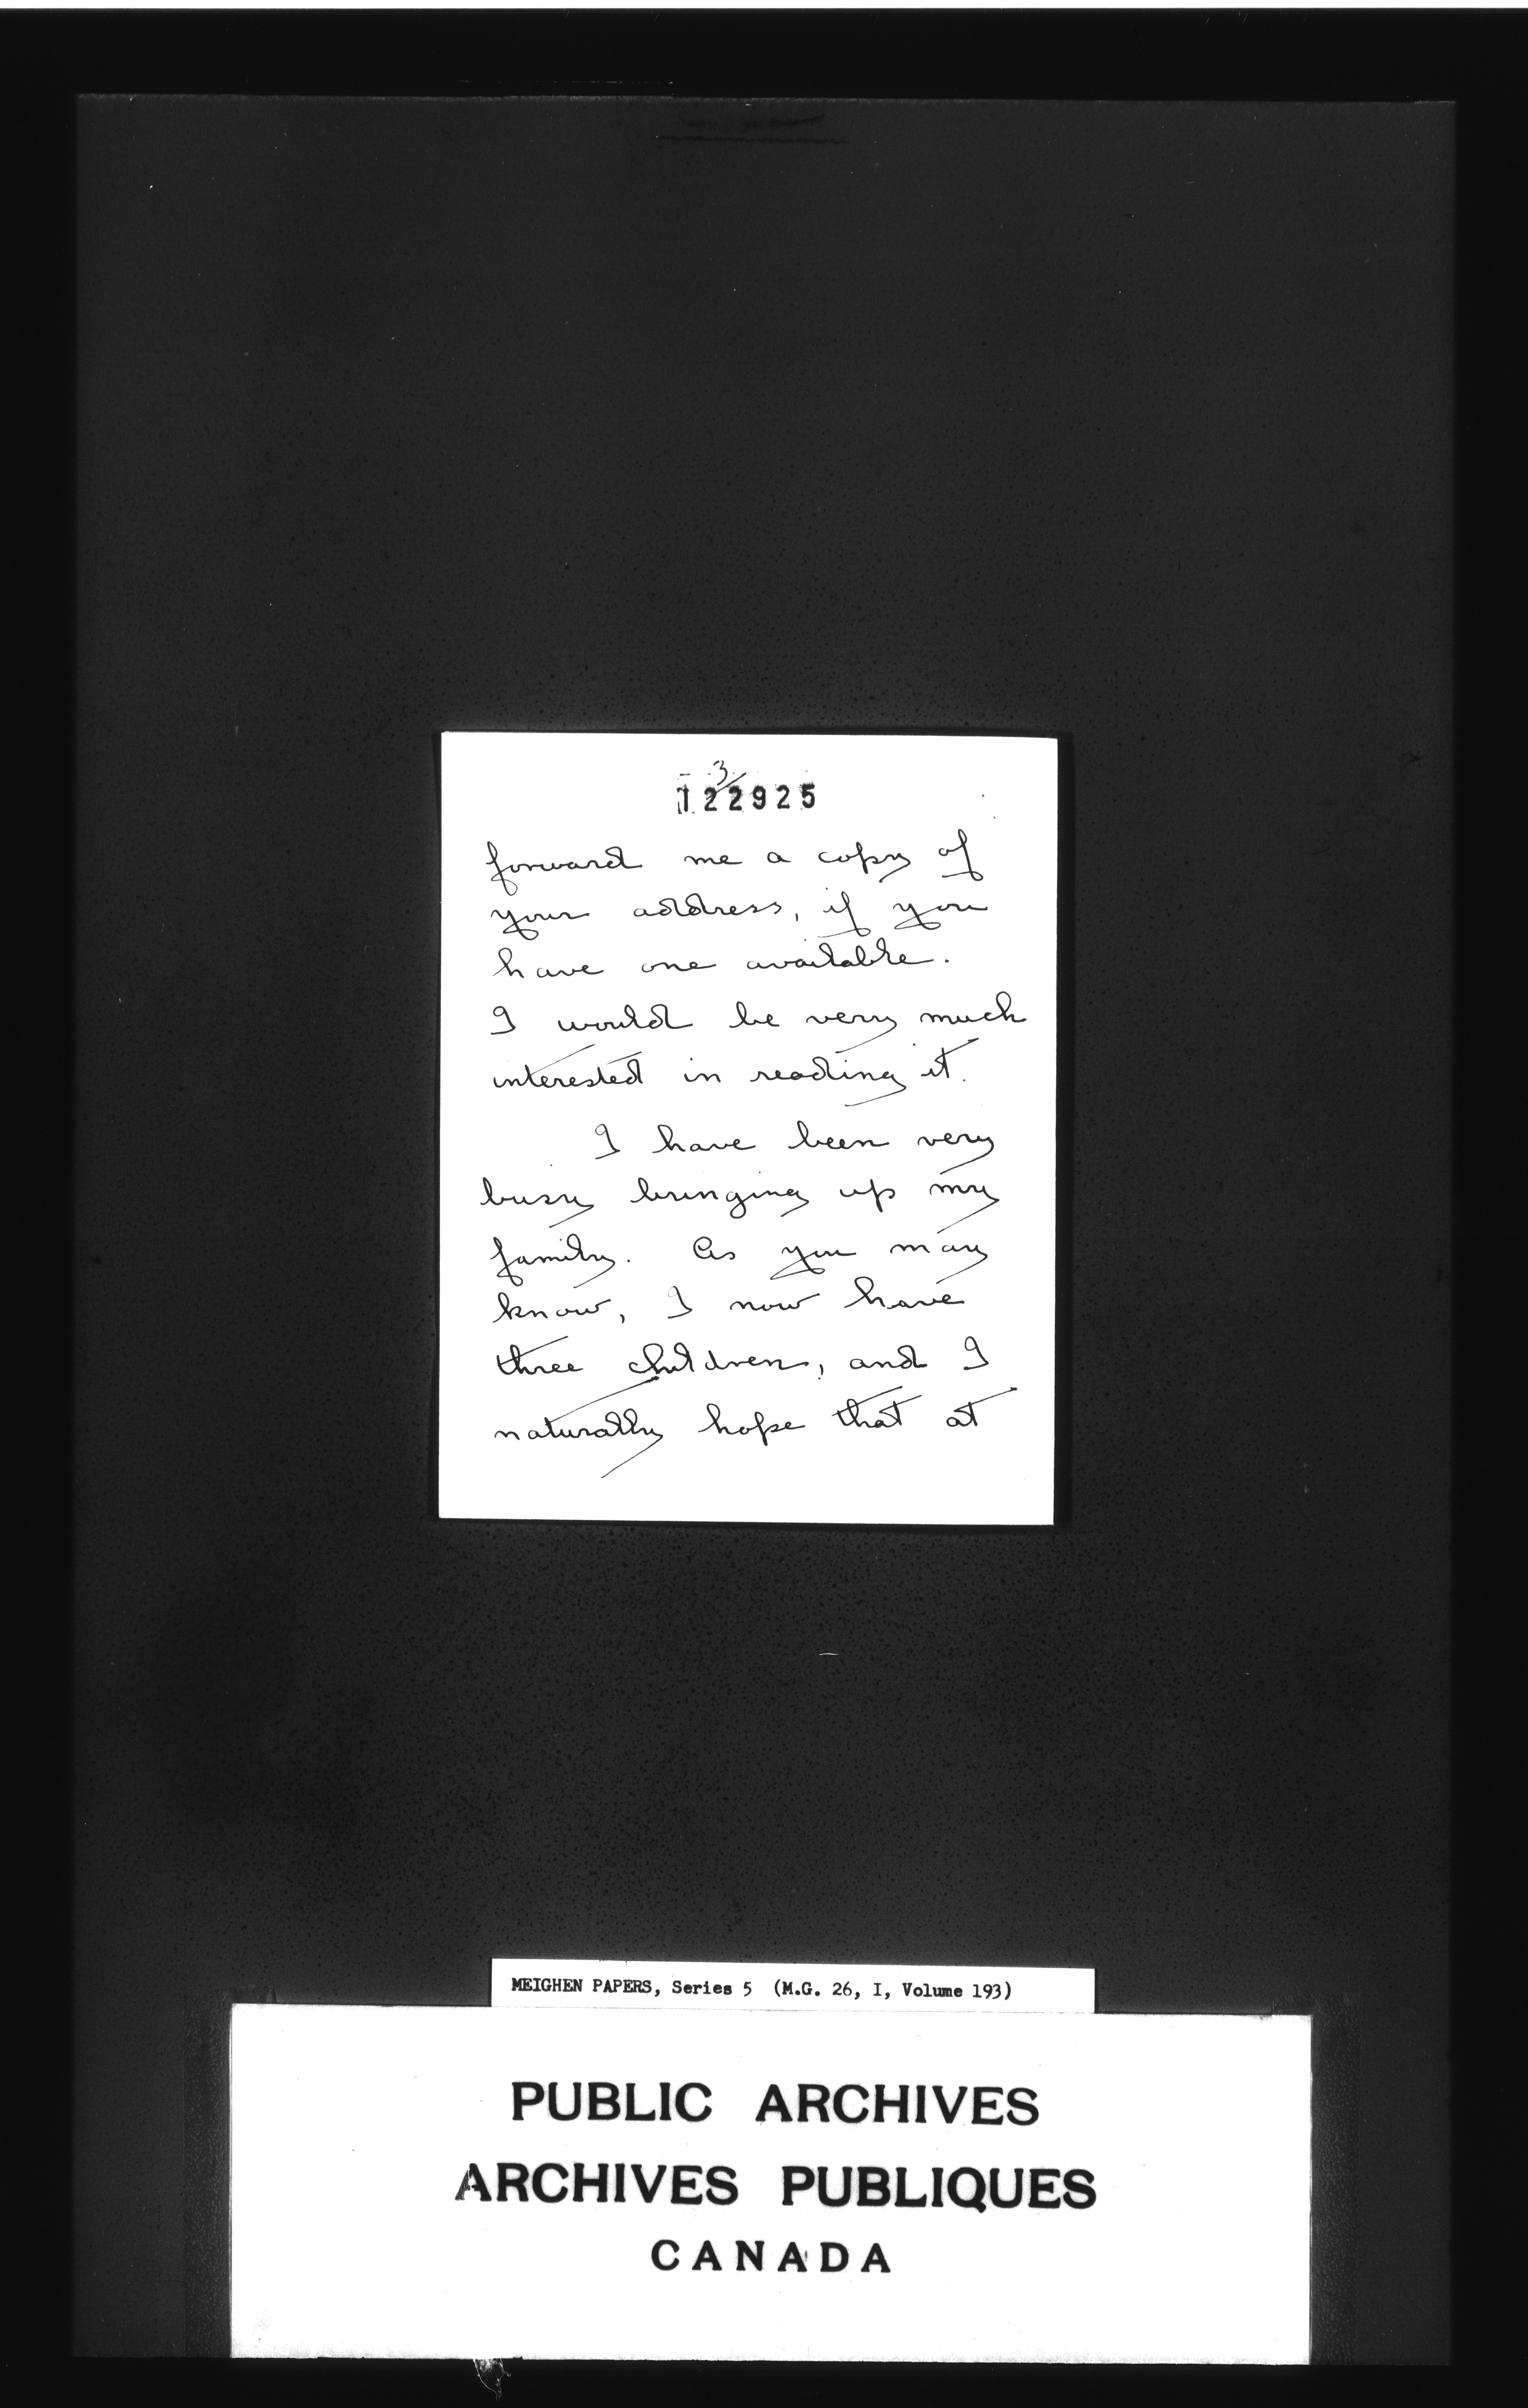 3/
122925
forward me a copy of
your address, if you
have one available.
I would be very much
interested in reading it.
I have been very
busy bringing up my
family. As you may
know, I now have
three children, and I
naturally hope that at
MEIGHEN PAPERS, Series 5 (M.G. 26, I, Volume 193)
PUBLIC ARCHIVES
ARCHIVES PUBLIQUES
CANADA